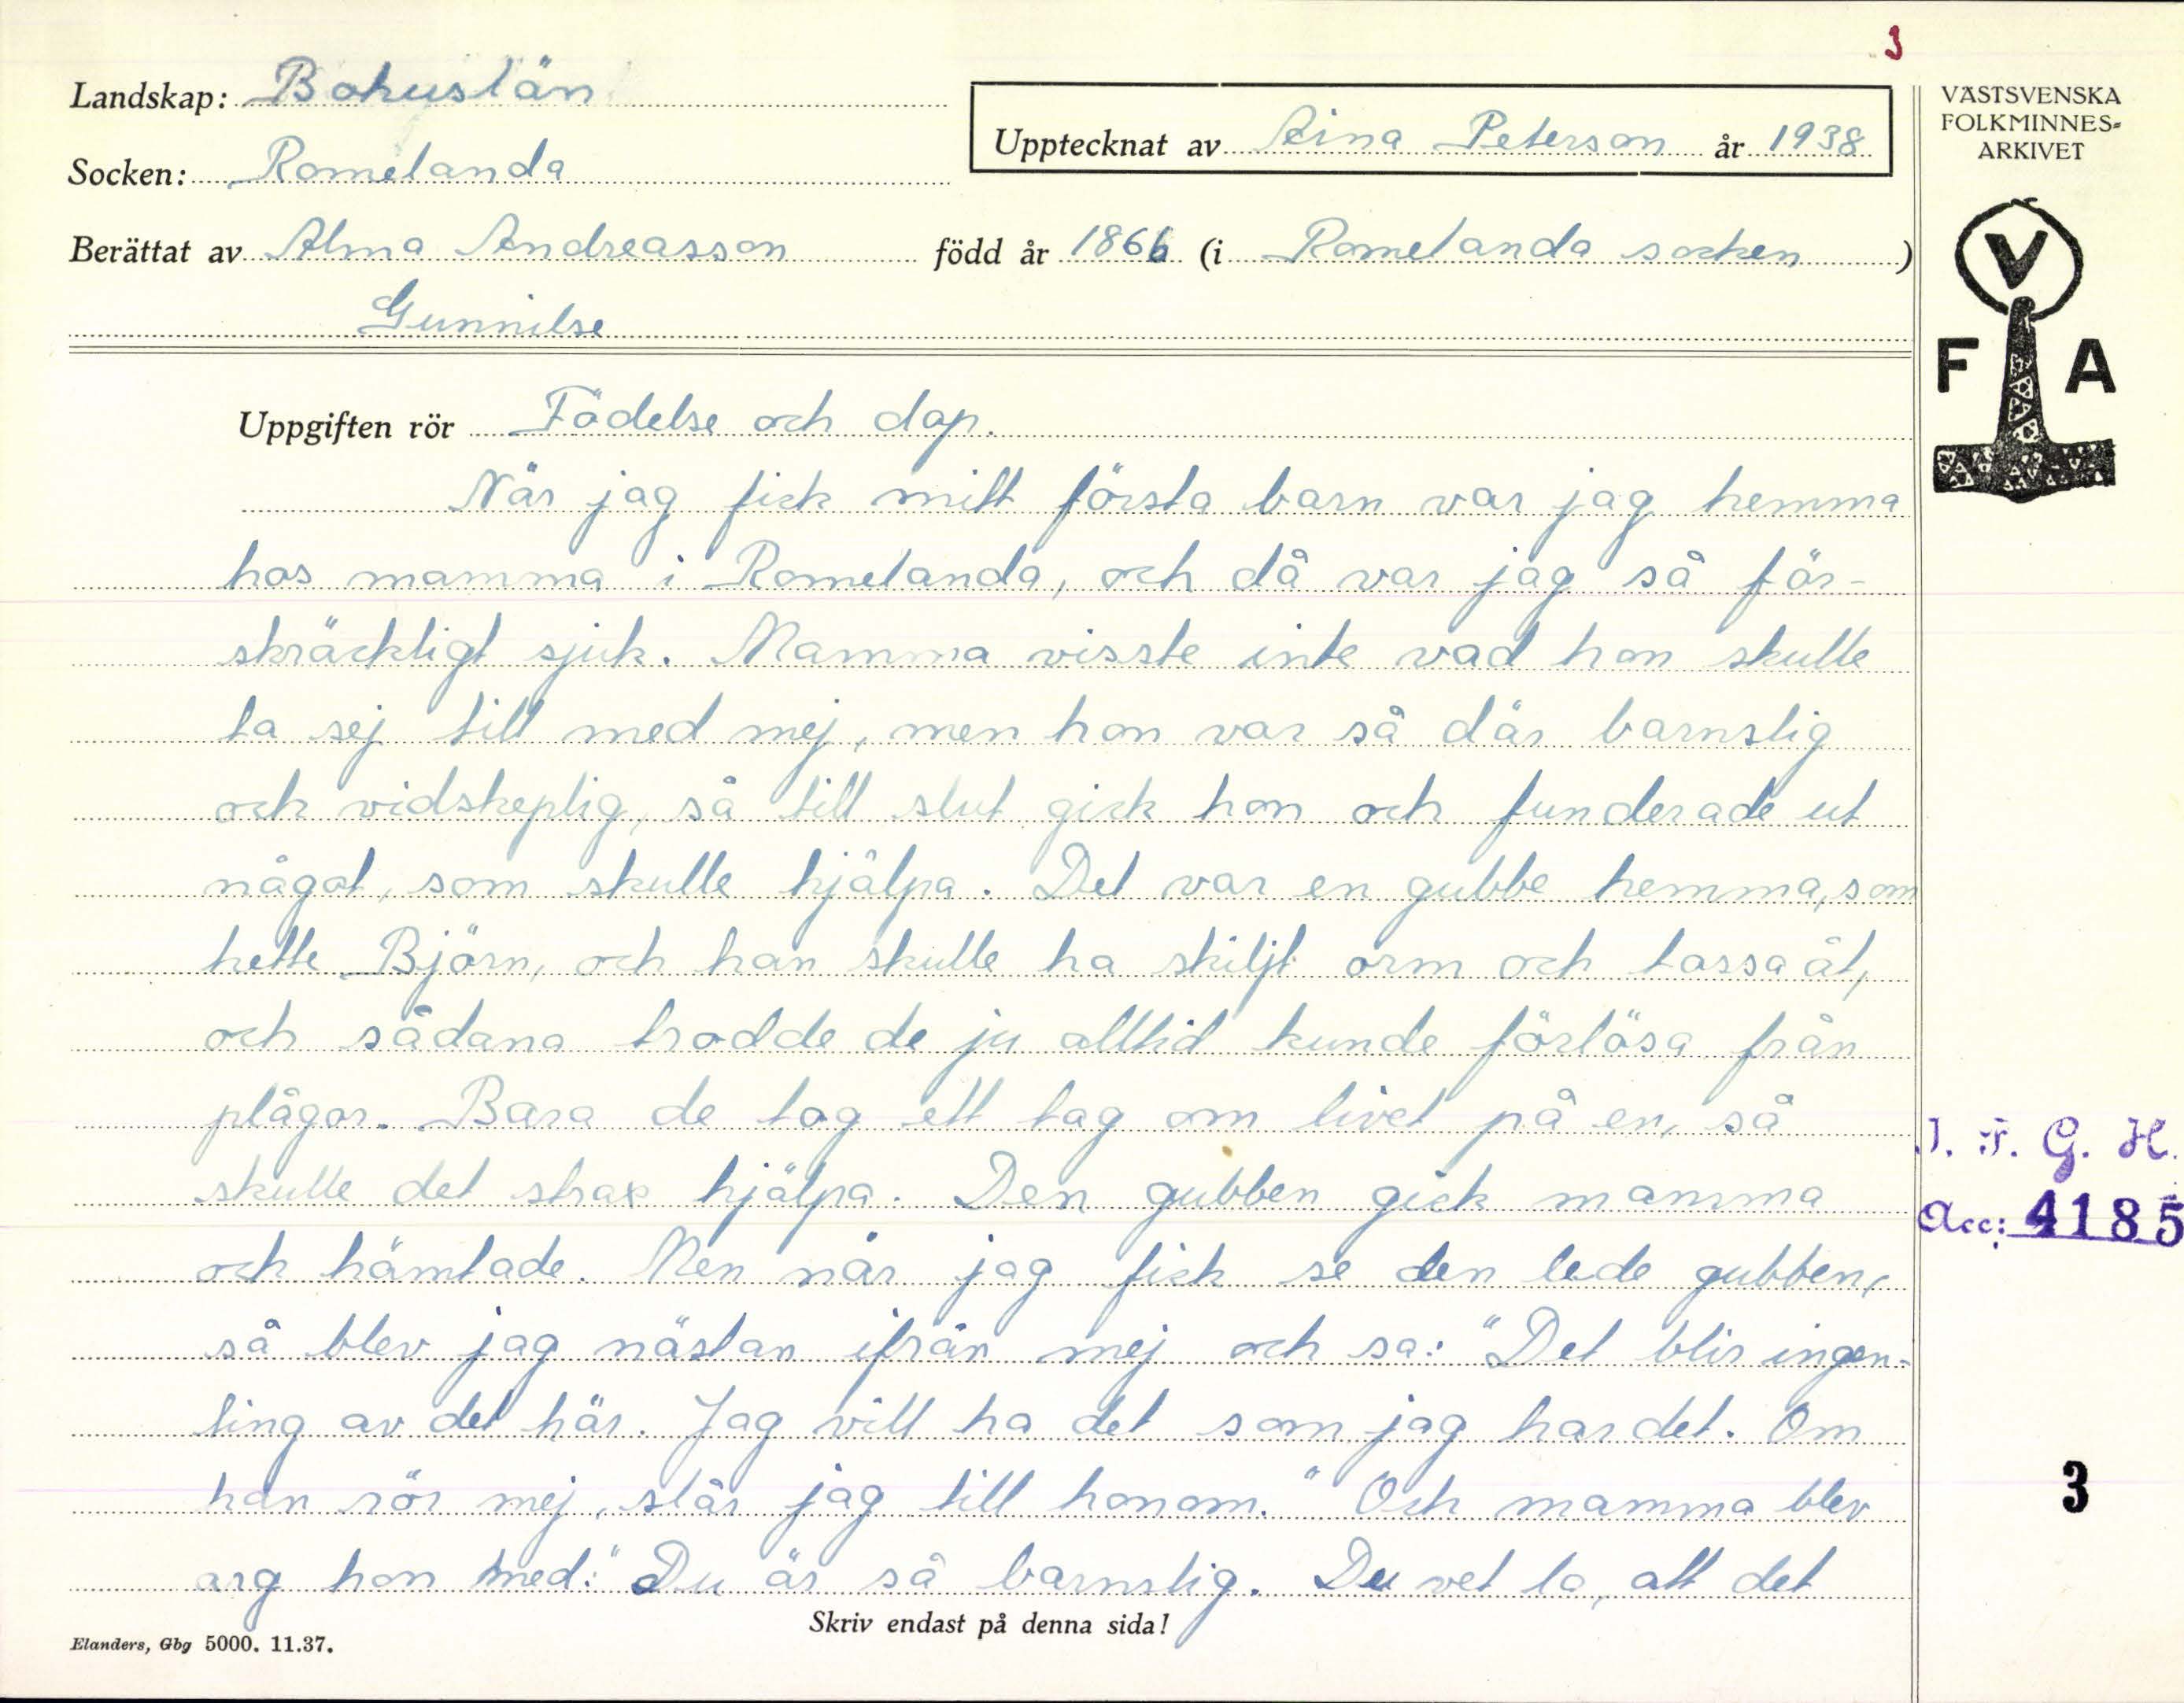 3
Landskap: Bohuslän
Upptecknat av Aina Peterson år 1938
Socken: Romelanda
Berättat av Alma Andreasson född år 1866 (i Romelanda socken)
Gunnilse
VÄSTSVENSKA
FOLKMINNES-
ARKIVET
V
F A
Uppgiften rör Födelse och dop.
När jag fick mitt första barn var jag hemma
hos mamma i Romelanda, och då var jag så för-
skräckligt sjuk. Mamma visste inte vad hon skulle
ta sej till med mej, men hon var så där barnslig
och vidskeplig, så till slut gick hon och funderade ut
något, som skulle hjälpa. Det var en gubbe hemma, som
hette Björn, och han skulle ha skiljt orm och tossa åt,
och sådana trodde de ju alltid kunde förlösa från
plågor. Bara de tog ett tag om livet på en, så
skulle det strax hjälpa. Den gubben gick mamma
och hämtade. Men när jag fick se den lede gubben,
så blev jag nästan ifrån mej och sa: "Det blir ingen-
ting av det här. Jag vill ha det som jag har det. Om
han rör mej, slår jag till honom." Och mamma blev
arg hon med: "Du är så barnslig. Du vet la, att det
Skriv endast på denna sida!
Elanders, Gbg 5000. 11.37.
I. F. G. H.
Acc: 4185
3